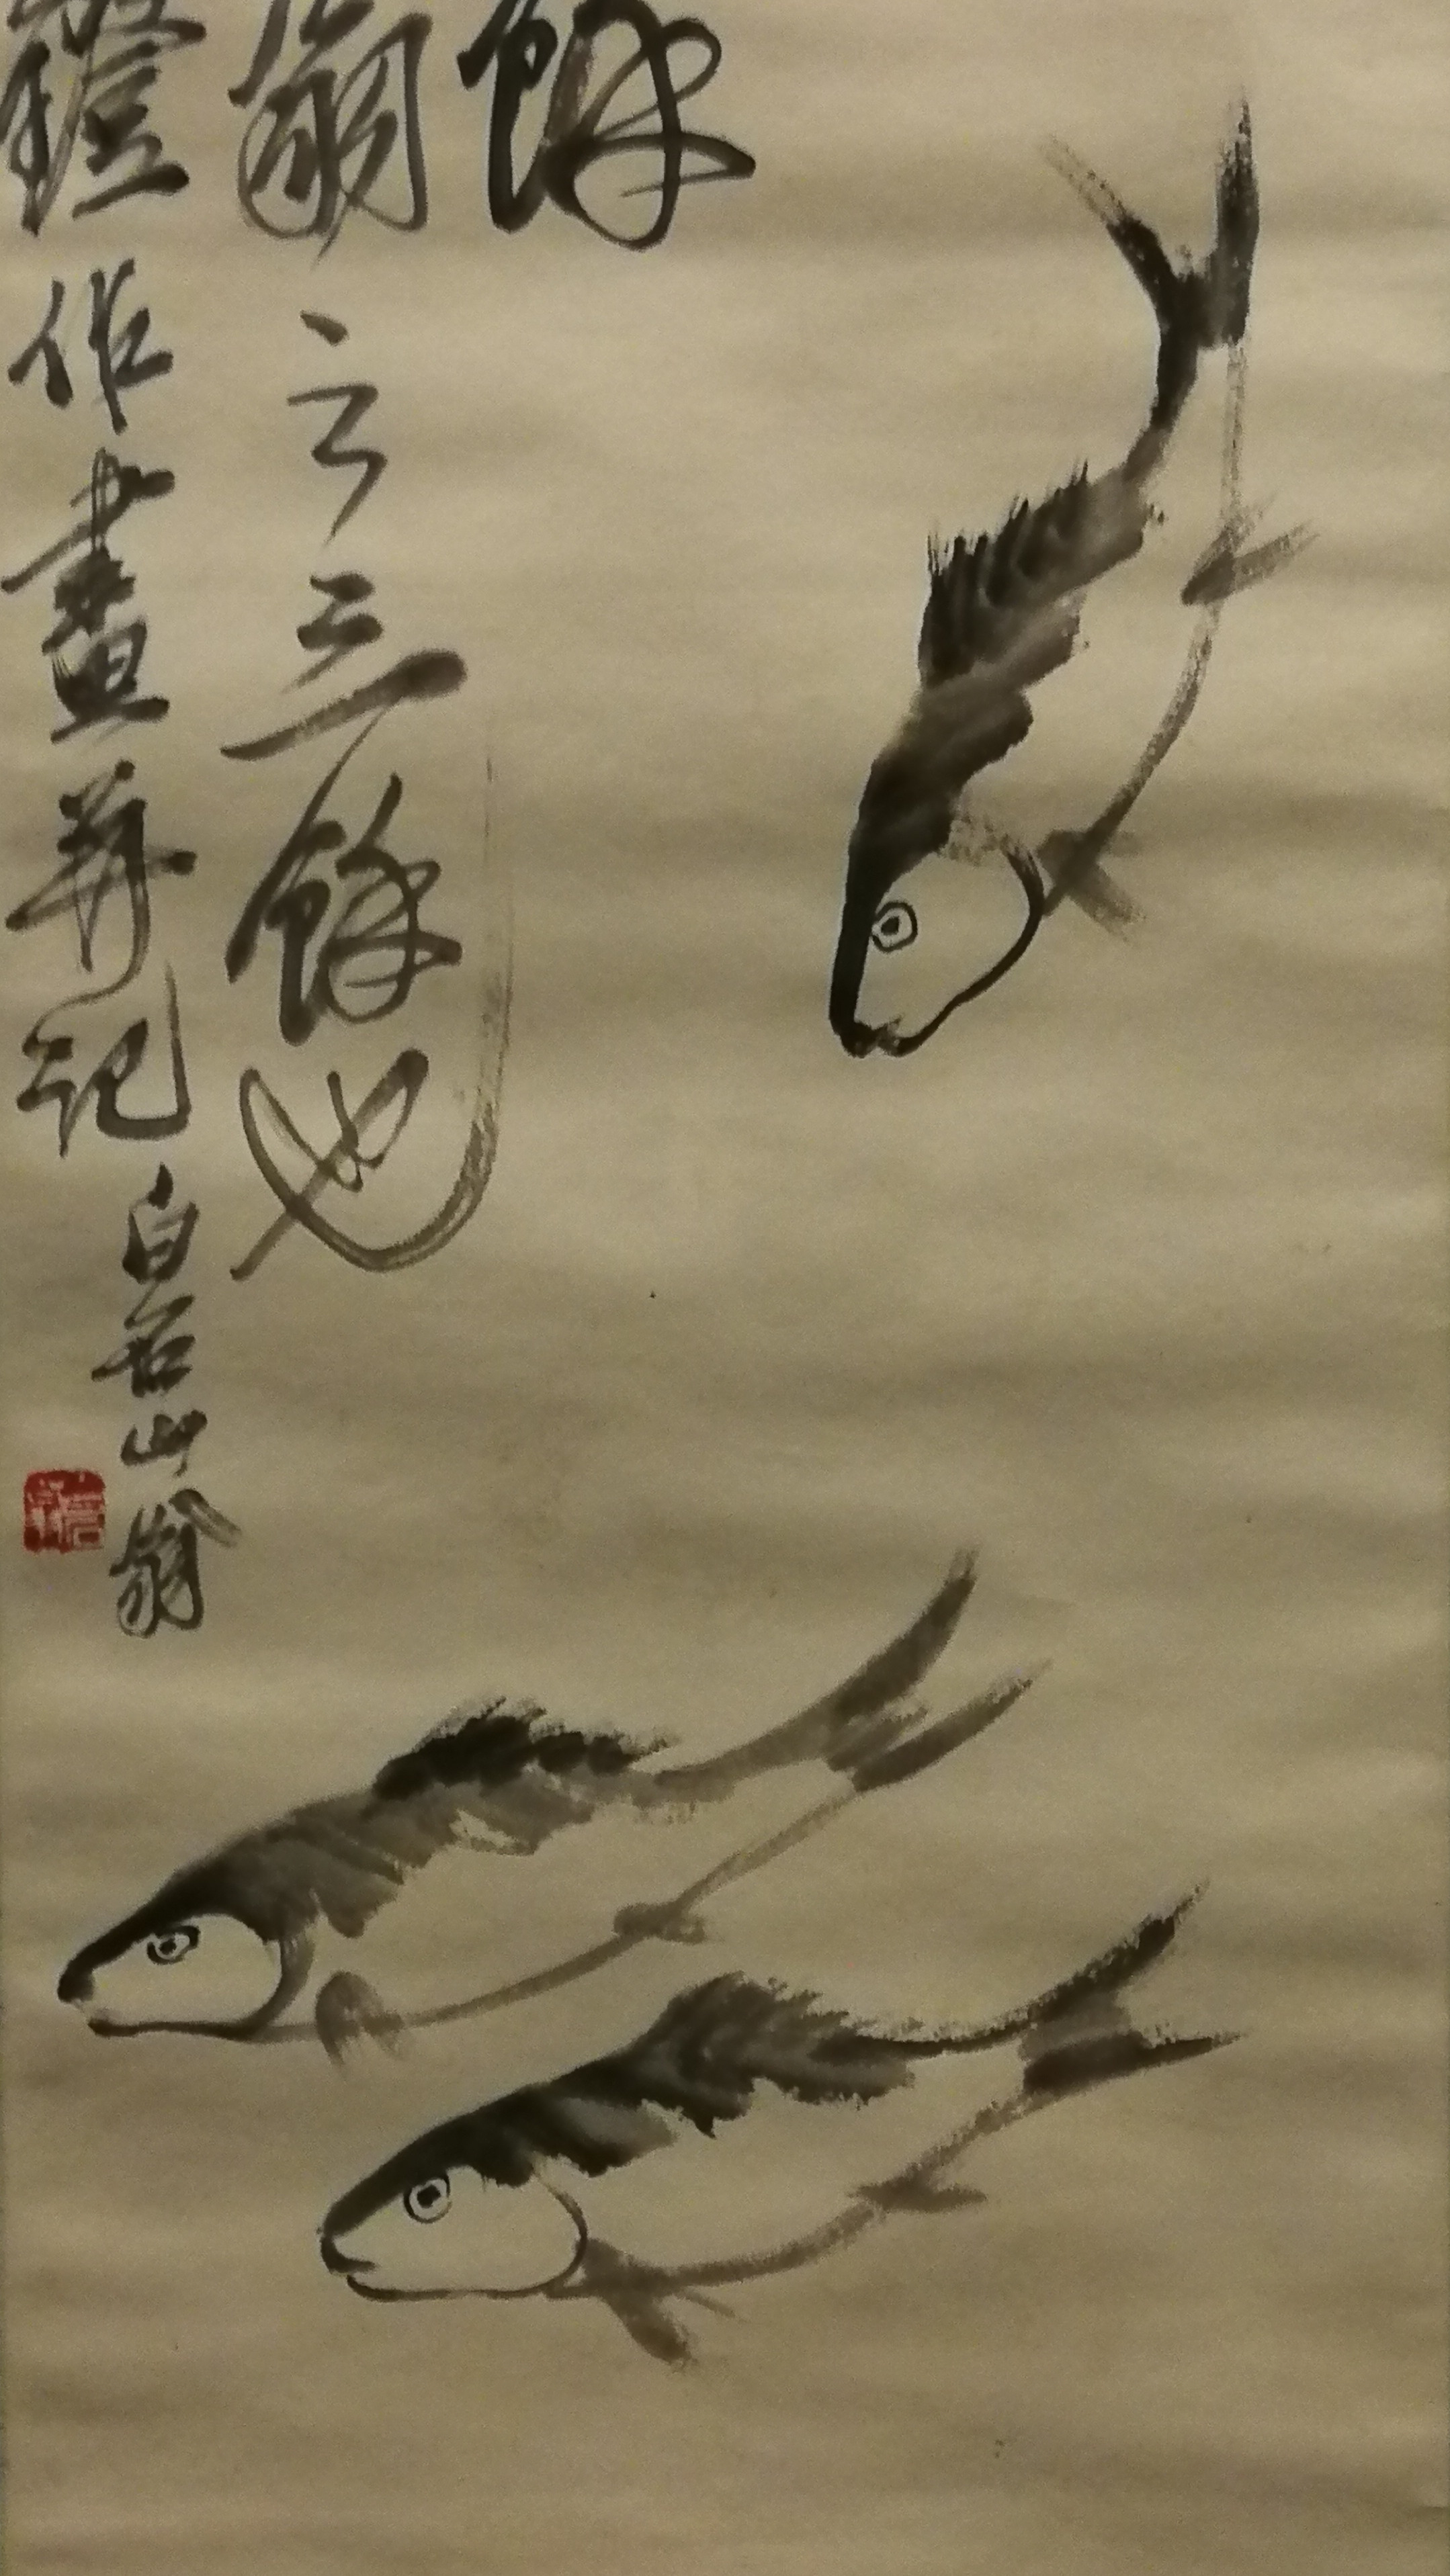 餘
翁之三餘也
鐙作畫并記
白石山翁